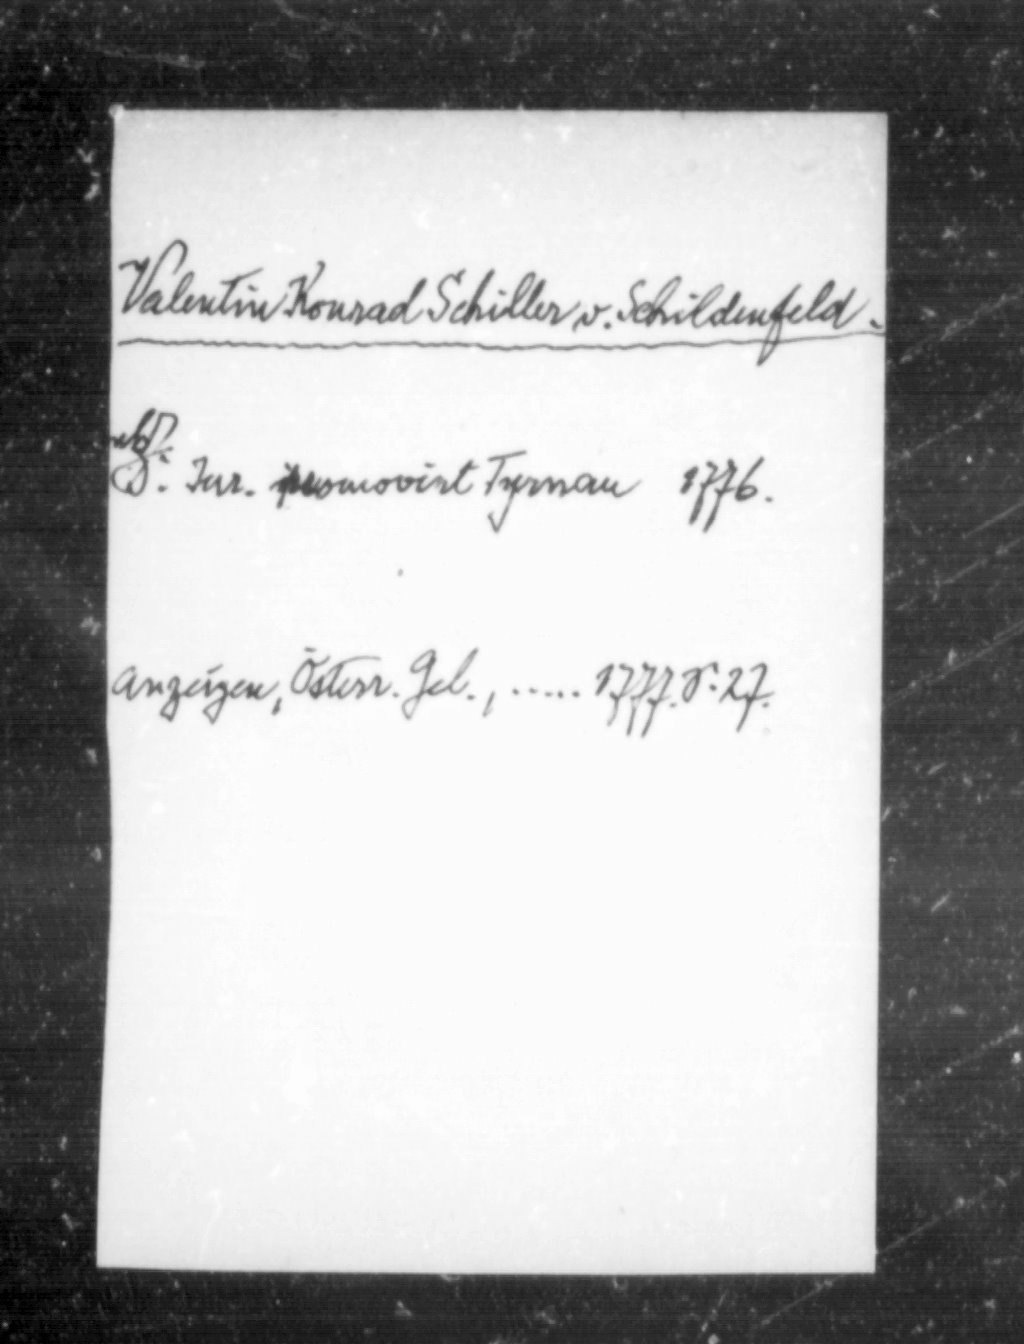 Valentin Konrad Schiller v. Schildenfeld.
D. Jur. promovirt Tyrnau 1776.
Anzeigen, Österr. Gel., ..... 1777. S. 27.